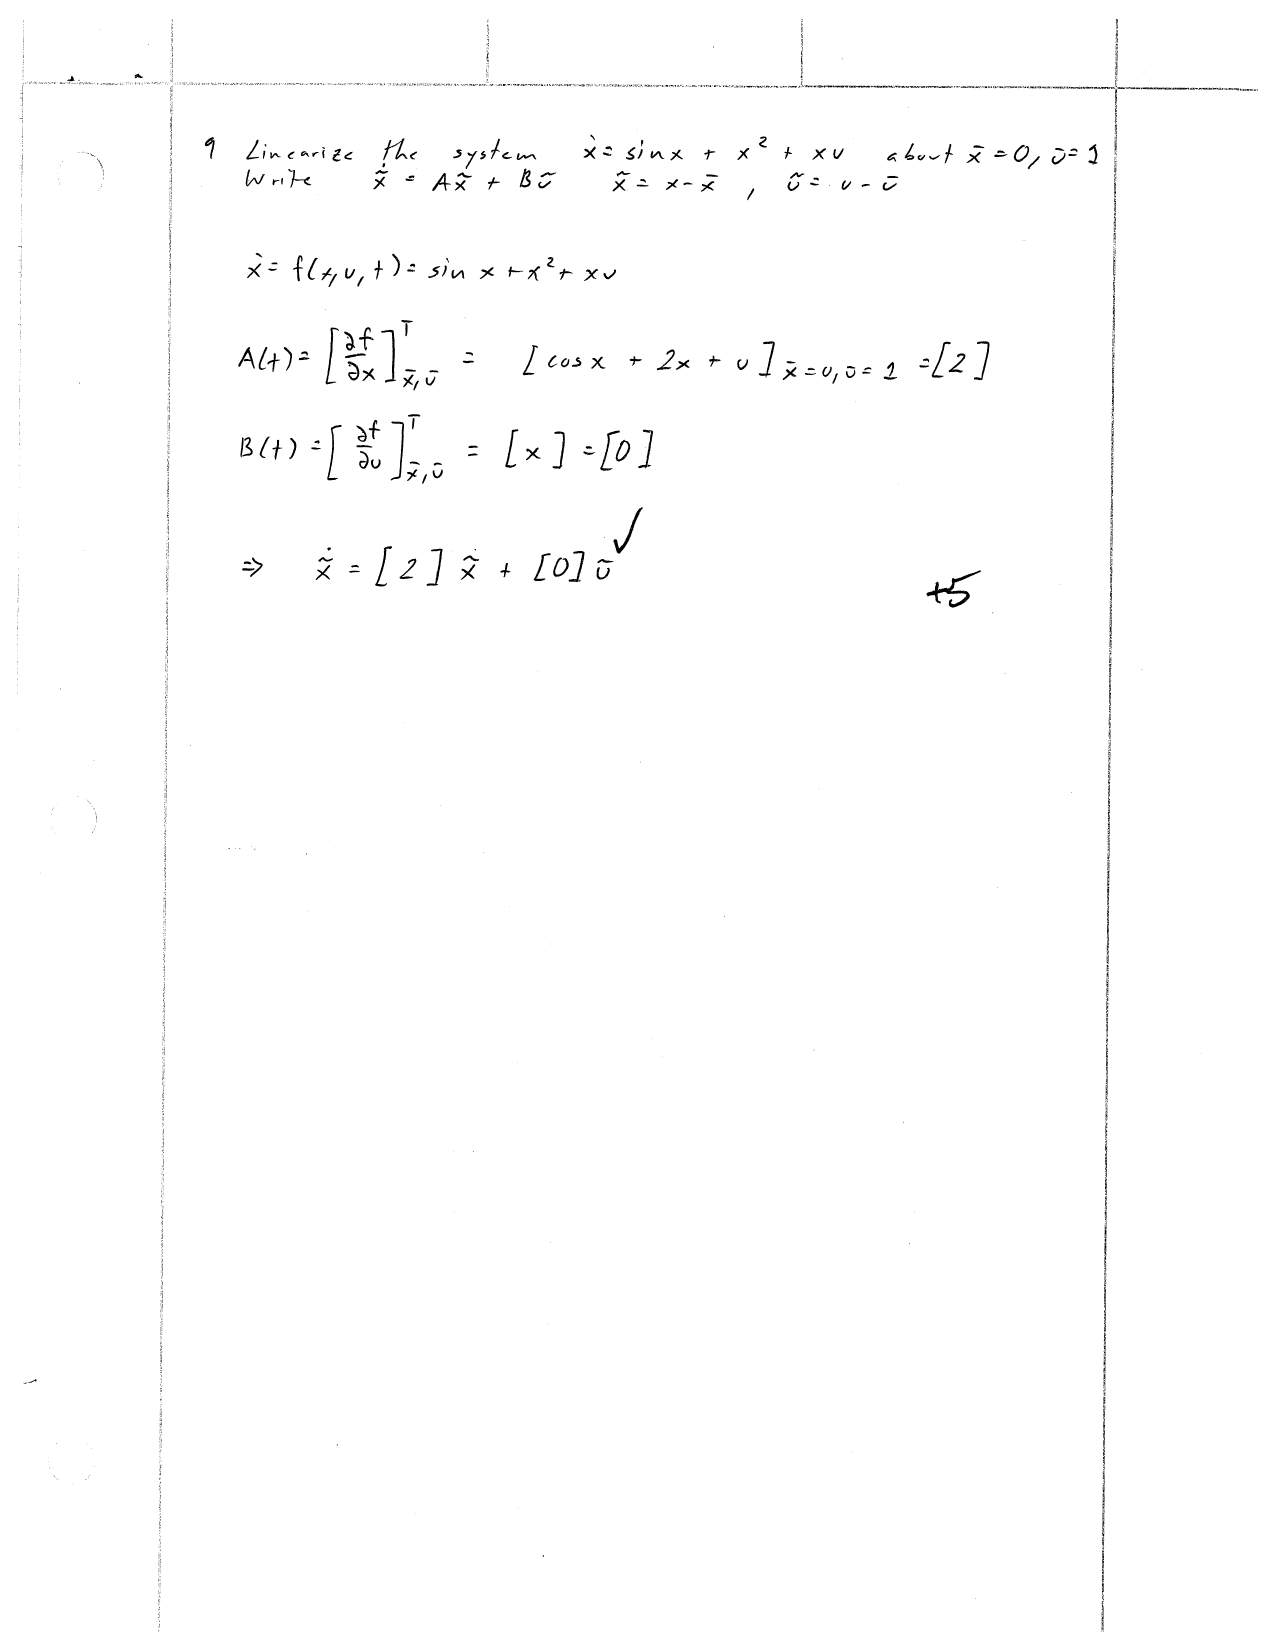 9 Linearize the system ẋ = sin x + x² + xu about x̄ = 0, ū = 1
Write x̃̇ = Ax̃ + Bũ x̃ = x - x̄ , ũ = u - ū
ẋ = f(x, u, t) = sin x + x² + xu
A(t) = [∂f/∂x]ᵀ x̄, ū = [cos x + 2x + u] x̄ = 0, ū = 1 = [2]
B(t) = [∂f/∂u]ᵀ x̄, ū = [x] = [0]
⇒ x̃̇ = [2] x̃ + [0] ũ ✓
+5